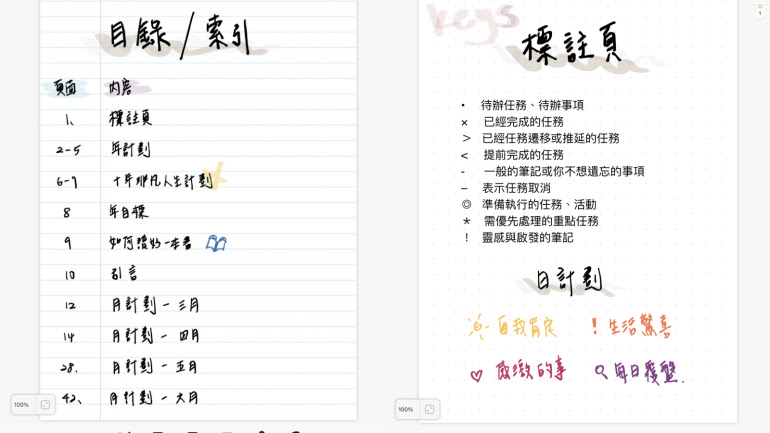 目錄/索引
頁面 內容
1、 標註頁
2-5 年計劃
6-7 十年非凡人生計劃
8 年目標
9 如何讀好一本書
10 引言
12 月計劃 - 三月
14 月計劃 - 四月
28. 月計劃 - 五月
42、 月計劃 - 六月
100%
keys
標註頁
• 待辦任務、待辦事項
× 已經完成的任務
> 已經任務遷移或推延的任務
< 提前完成的任務
- 一般的筆記或你不想遺忘的事項
— 表示任務取消
◎ 準備執行的任務、活動
* 需優先處理的重點任務
! 靈感與啟發的筆記
日計劃
自我肯定 ! 生活驚喜
♡ 感激的事 每日覆盤.
100%
1